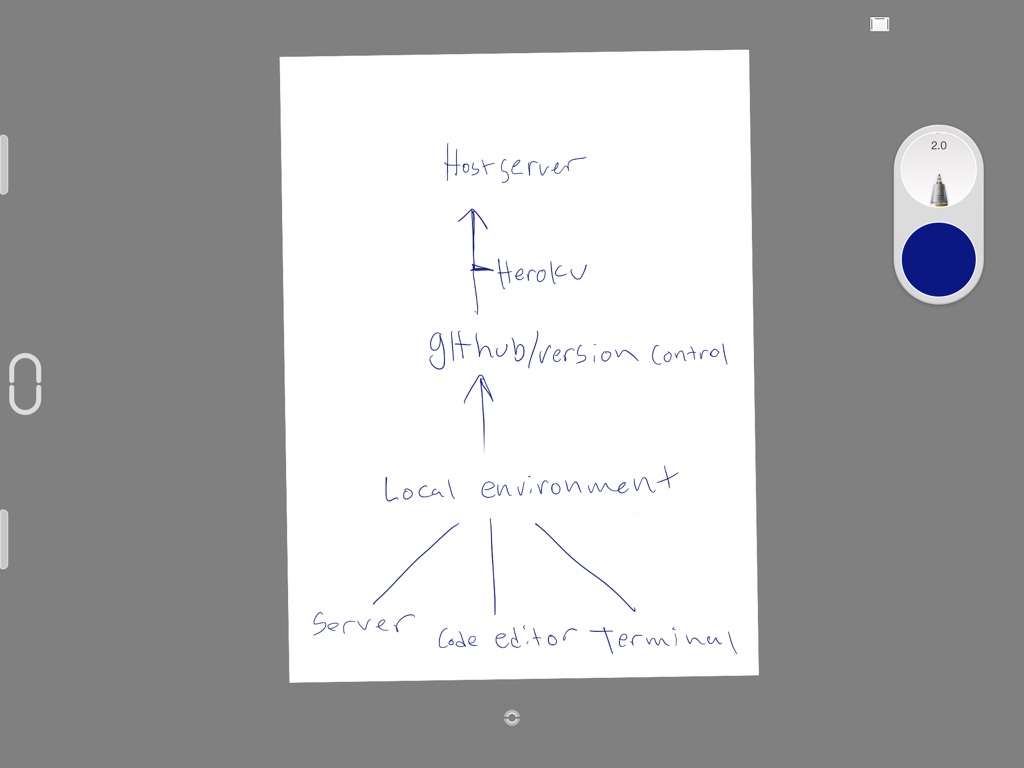 2.0
Host server
Heroku
github/version control
Local environment
Server Code editor Terminal